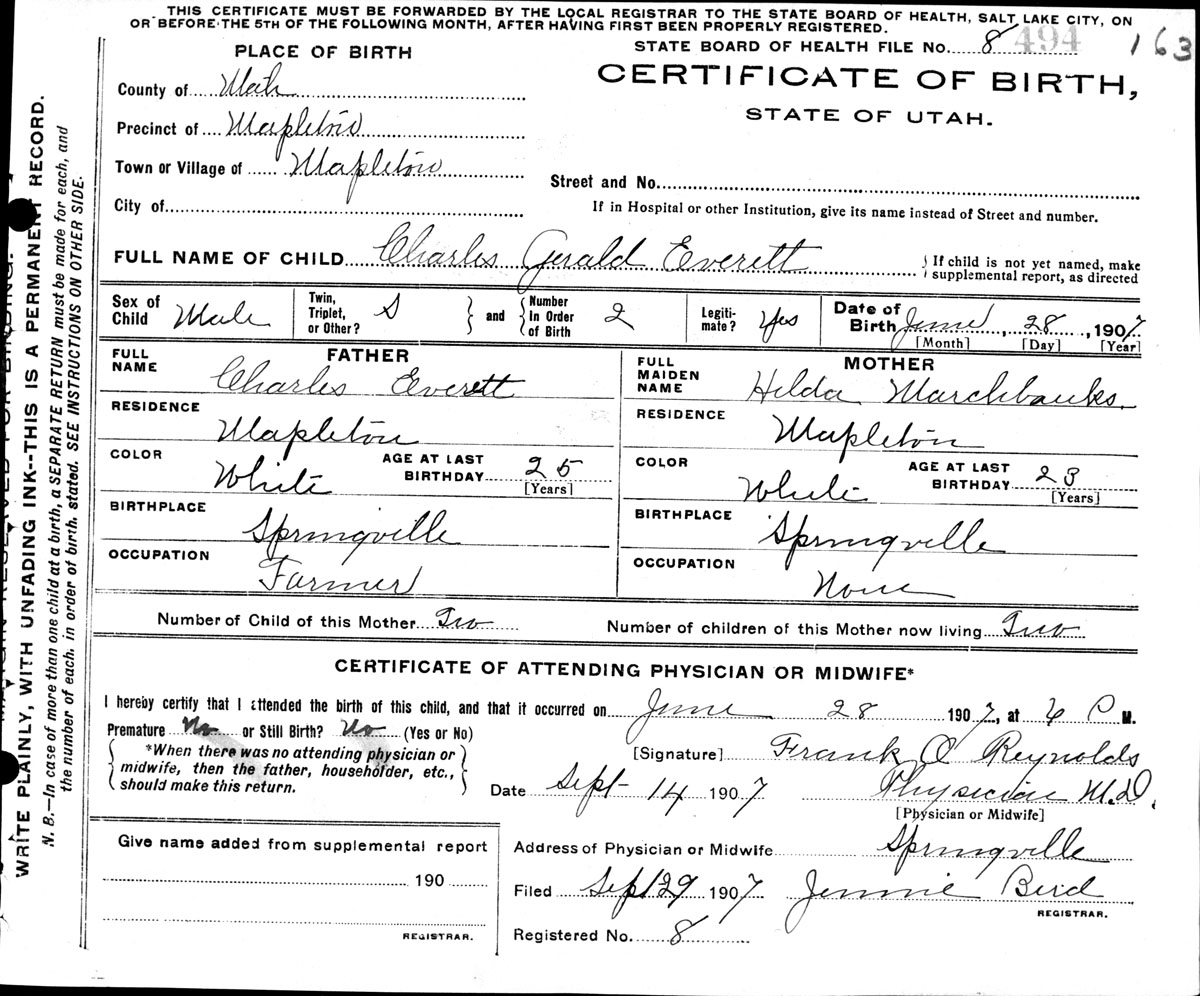 THIS CERTIFICATE MUST BE FORWARDED BY THE LOCAL REGISTRAR TO THE STATE BOARD OF HEALTH, SALT LAKE CITY, ON
OR BEFORE THE 5TH OF THE FOLLOWING MONTH, AFTER HAVING FIRST BEEN PROPERLY REGISTERED.
PLACE OF BIRTH
STATE BOARD OF HEALTH FILE No. 8 494 163
CERTIFICATE OF BIRTH,
STATE OF UTAH.
County of Utah
Precinct of Mapleton
Town or Village of Mapleton
Street and No.
City of
If in Hospital or other Institution, give its name instead of Street and number.
FULL NAME OF CHILD Charles Gerald Everett
If child is not yet named, make
supplemental report, as directed
Sex of Child Male
Twin, Triplet, or Other? S
and
Number In Order of Birth 2
Legiti-mate? Yes
Date of Birth June 28, 1907
[Month] [Day] [Year]
FATHER
FULL NAME Charles Everett
RESIDENCE Mapleton
COLOR White
AGE AT LAST BIRTHDAY 25
[Years]
BIRTHPLACE Springville
OCCUPATION Farmer
MOTHER
FULL MAIDEN NAME Hilda Marchbanks
RESIDENCE Mapleton
COLOR White
AGE AT LAST BIRTHDAY 23
[Years]
BIRTHPLACE Springville
OCCUPATION None
Number of Child of this Mother Two
Number of children of this Mother now living Two
CERTIFICATE OF ATTENDING PHYSICIAN OR MIDWIFE*
I hereby certify that I attended the birth of this child, and that it occurred on June 28 1907, at 6 P M.
Premature No or Still Birth? No (Yes or No)
*When there was no attending physician or
midwife, then the father, householder, etc.,
should make this return.
[Signature] Frank O Reynolds
Date Sept 14 1907 Physician M.D.
[Physician or Midwife]
Give name added from supplemental report
190
REGISTRAR.
Address of Physician or Midwife Springville
Filed Sept 29 1907 Jennie Bird
REGISTRAR.
Registered No. 8
WRITE PLAINLY, WITH UNFADING INK--THIS IS A PERMANENT RECORD.
N. B.—In case of more than one child at a birth, a SEPARATE RETURN must be made for each, and
the number of each, in order of birth, stated. SEE INSTRUCTIONS ON OTHER SIDE.